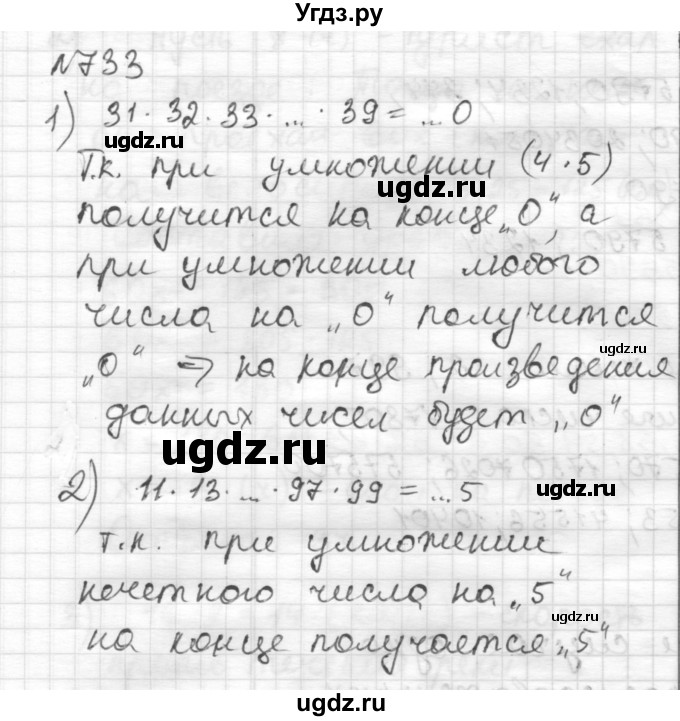 Угдз.ру
№733
1) 31·32·33·...·39=...0
ugdz.ru
Т.к. при умножении (4·5)
ugdz.ru
получится на конце „0“, а
при умножении любого
числа на „0“ получится
ugdz.ru
„0“ => на конце произведения
данных чисел будет „0“
ugdz.ru
2) 11·13·...·97·99=...5
ugdz.ru
т.к. при умножении
нечетного числа на „5“
на конце получается „5“
ugdz.ru
ugdz.ru